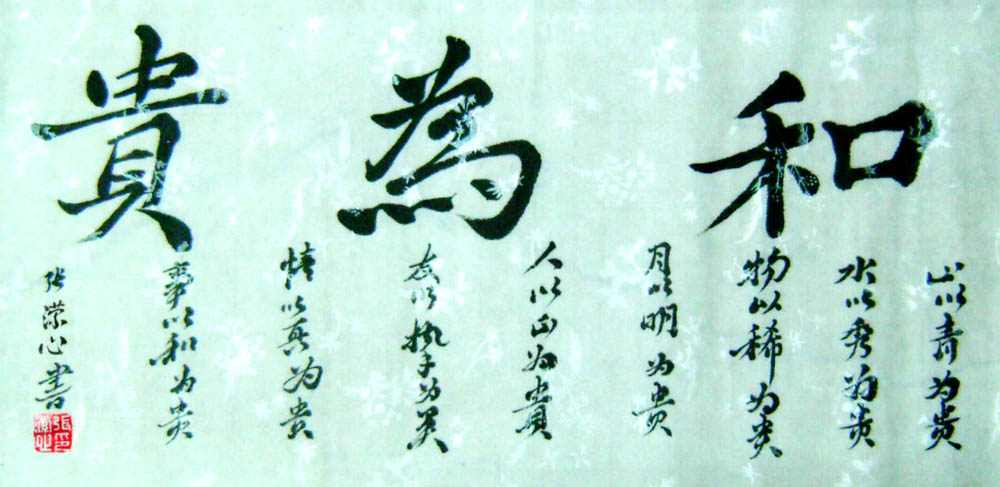 和為貴
山以青为贵
水以秀为贵
物以稀为贵
月以明为贵
人以正为貴
以挚为贵
情以真为贵
事以和为贵
张濚心書